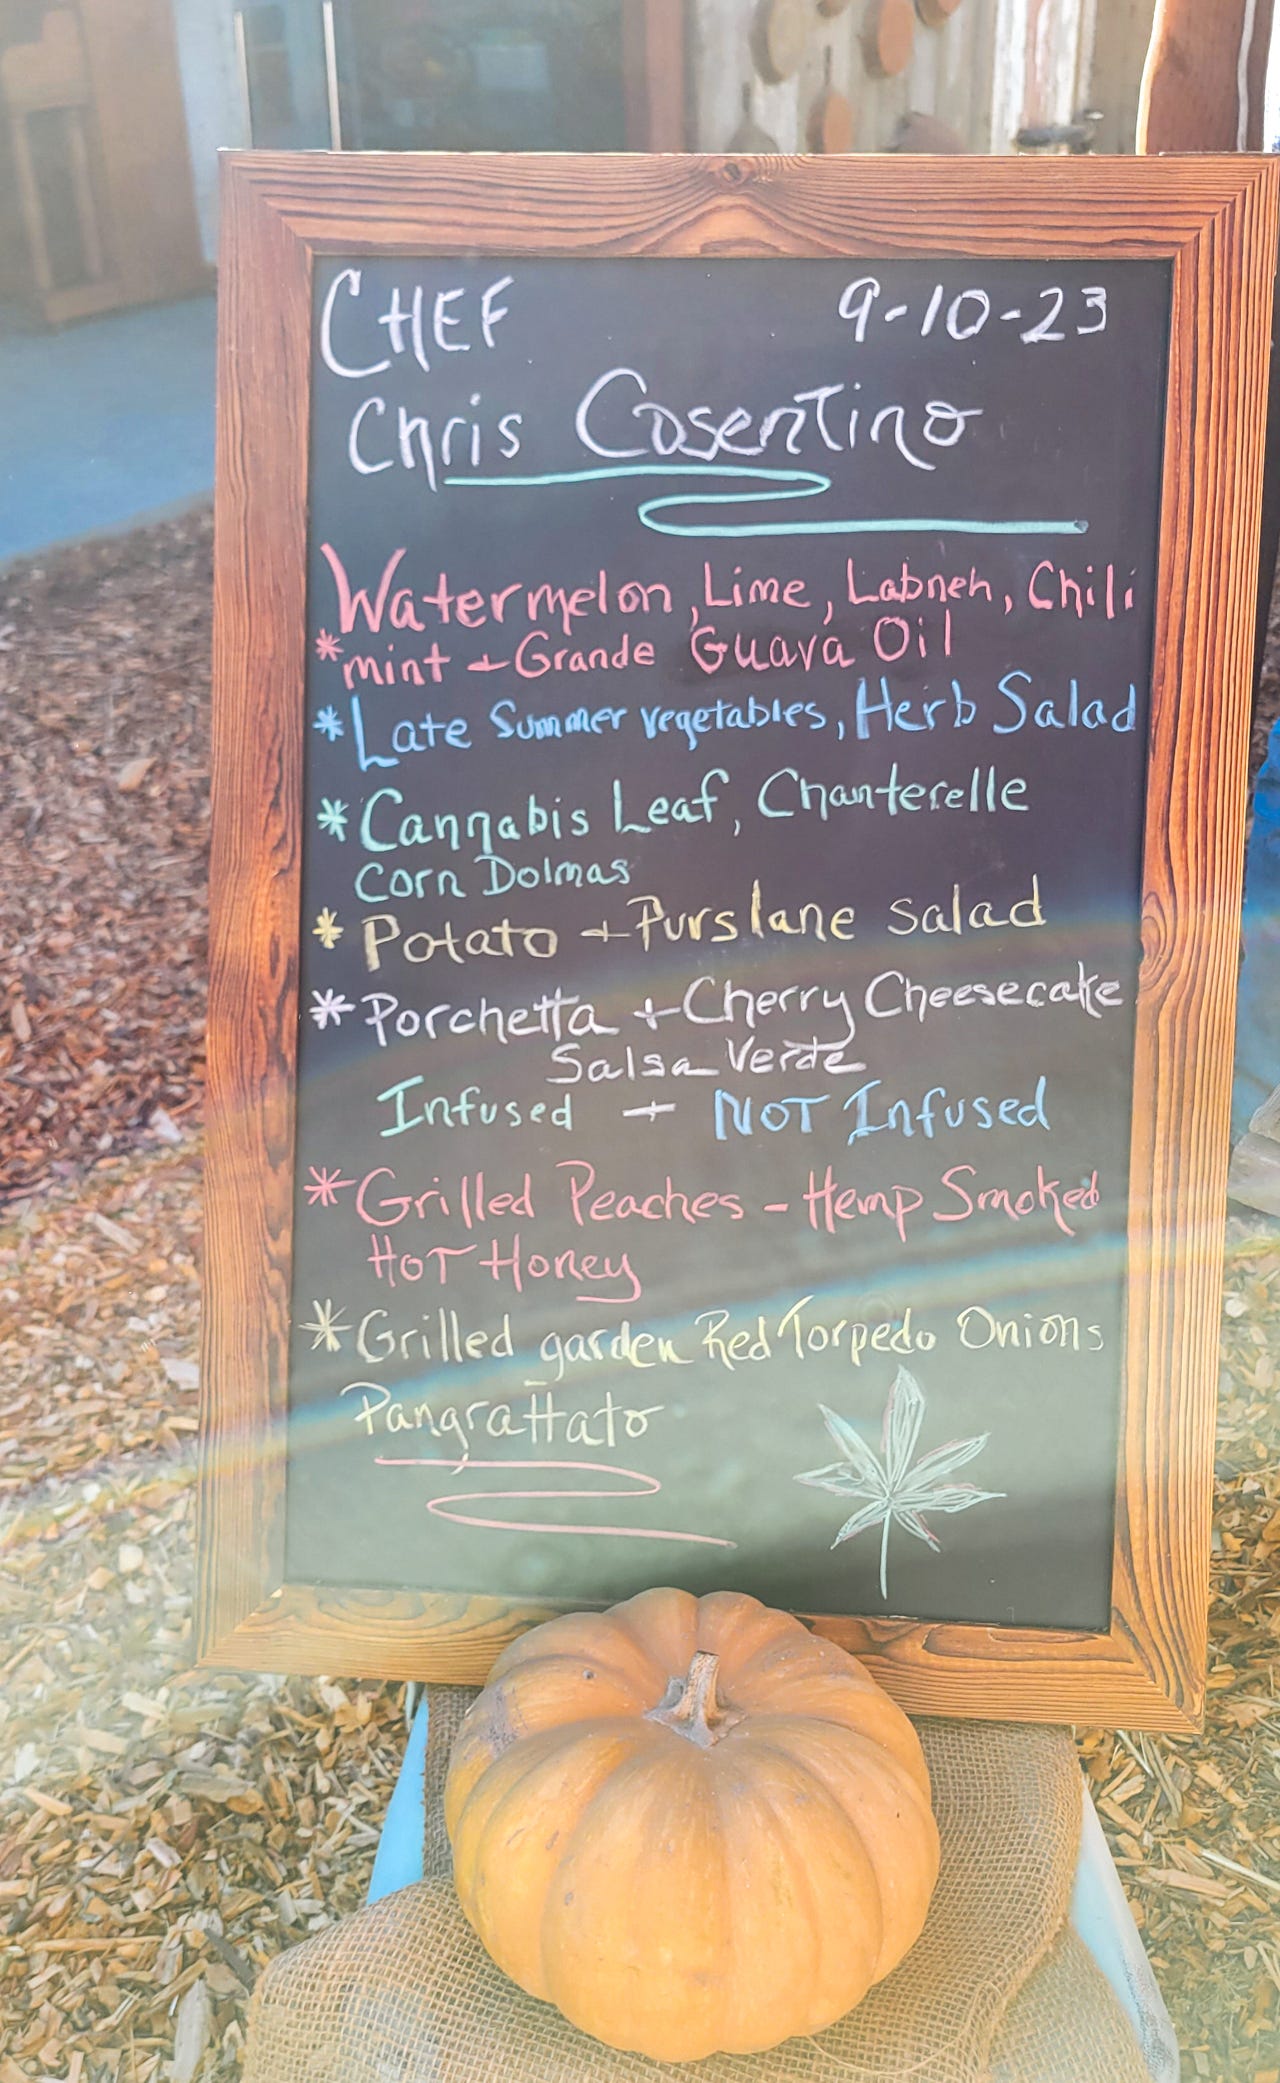 CHEF 9-10-23
Chris Cosentino
Watermelon, Lime, Labneh, Chili
*mint + Grande Guava Oil
*Late Summer vegetables, Herb Salad
*Cannabis Leaf, Chanterelle
Corn Dolmas
*Potato + Purslane salad
*Porchetta + Cherry Cheesecake
Salsa Verde
Infused + NOT Infused
*Grilled Peaches - Hemp Smoked
HOT Honey
*Grilled garden Red Torpedo Onions
Pangrattato